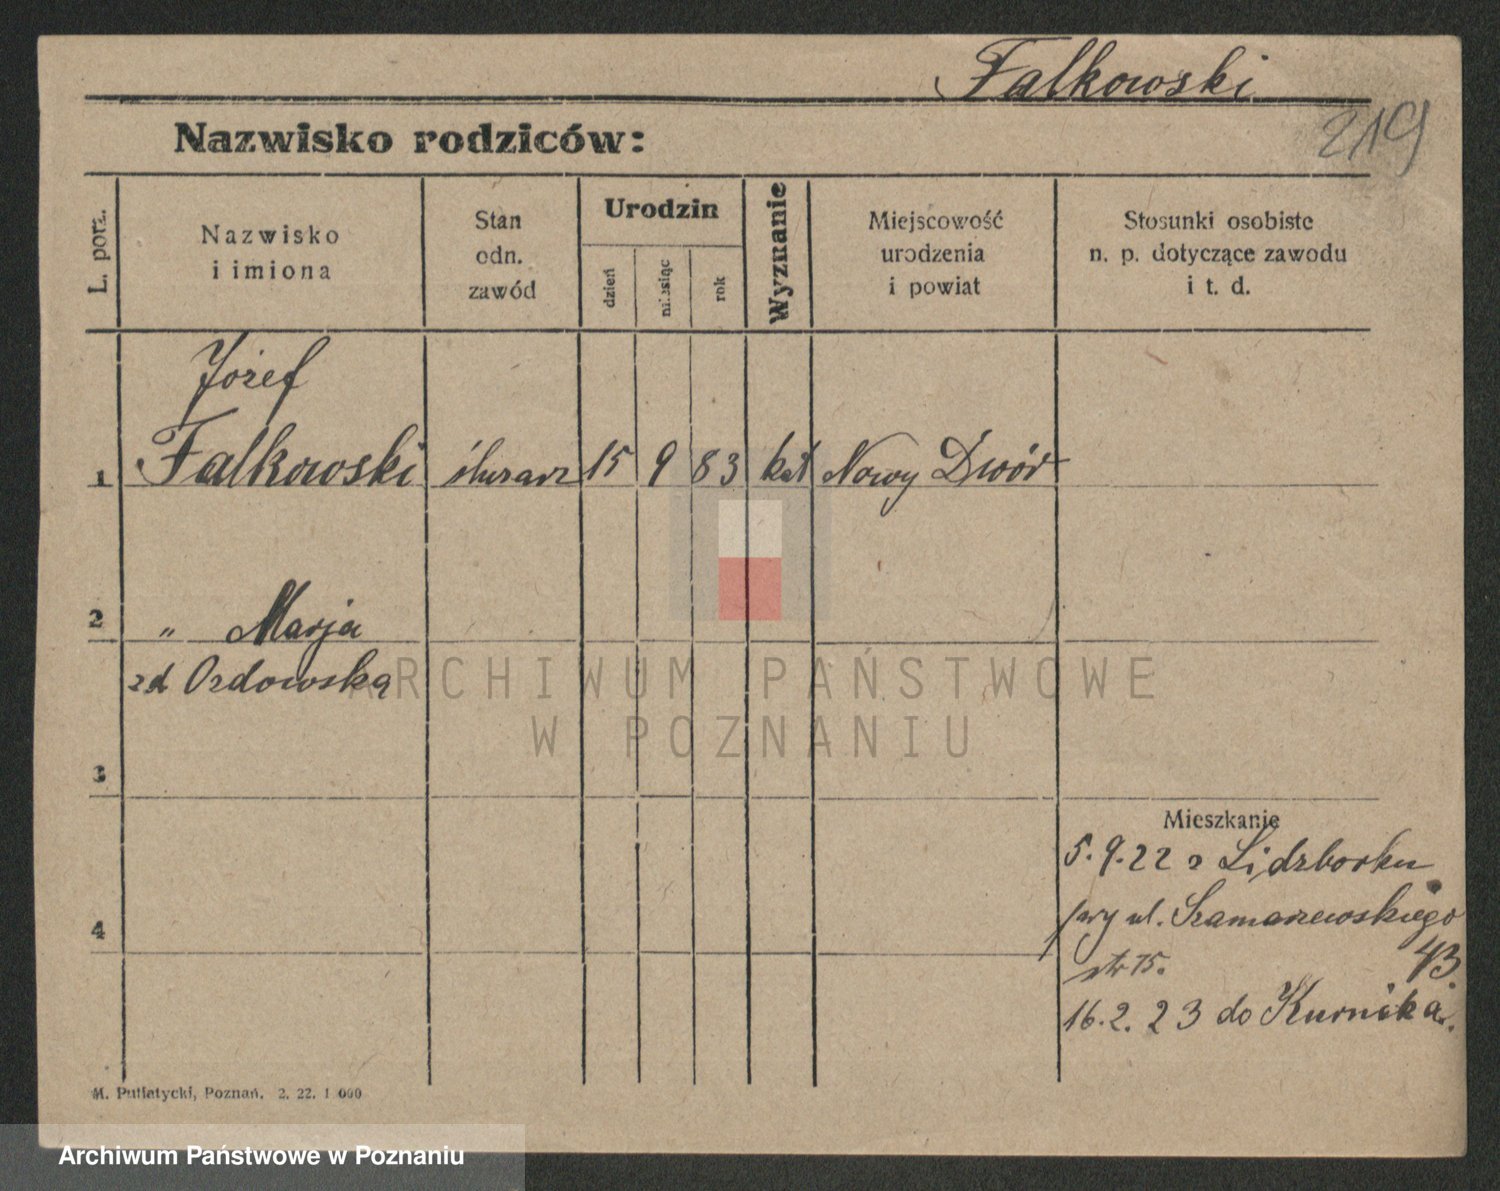 Falkowski
219
Nazwisko rodziców:
L. porz.
Nazwisko
i imiona
Stan
odn.
zawód
Urodzin
dzień
miesiąc
rok
Wyznanie
Miejscowość
urodzenia
i powiat
Stosunki osobiste
n. p. dotyczące zawodu
i t. d.
Józef
1 Falkowski ślusarz 15 9 83 kat Nowy Dwór
2 " Marja
zd Ordowska
3
Mieszkanie
5.9.22 z Lidzborku
przy ul. Szamarzewskiego
43.
str 15.
4
16.2.23 do Kurnika.
M. Putiatycki, Poznań. 2. 22. 1 000
ARCHIWUM PAŃSTWOWE
W POZNANIU
Archiwum Państwowe w Poznaniu